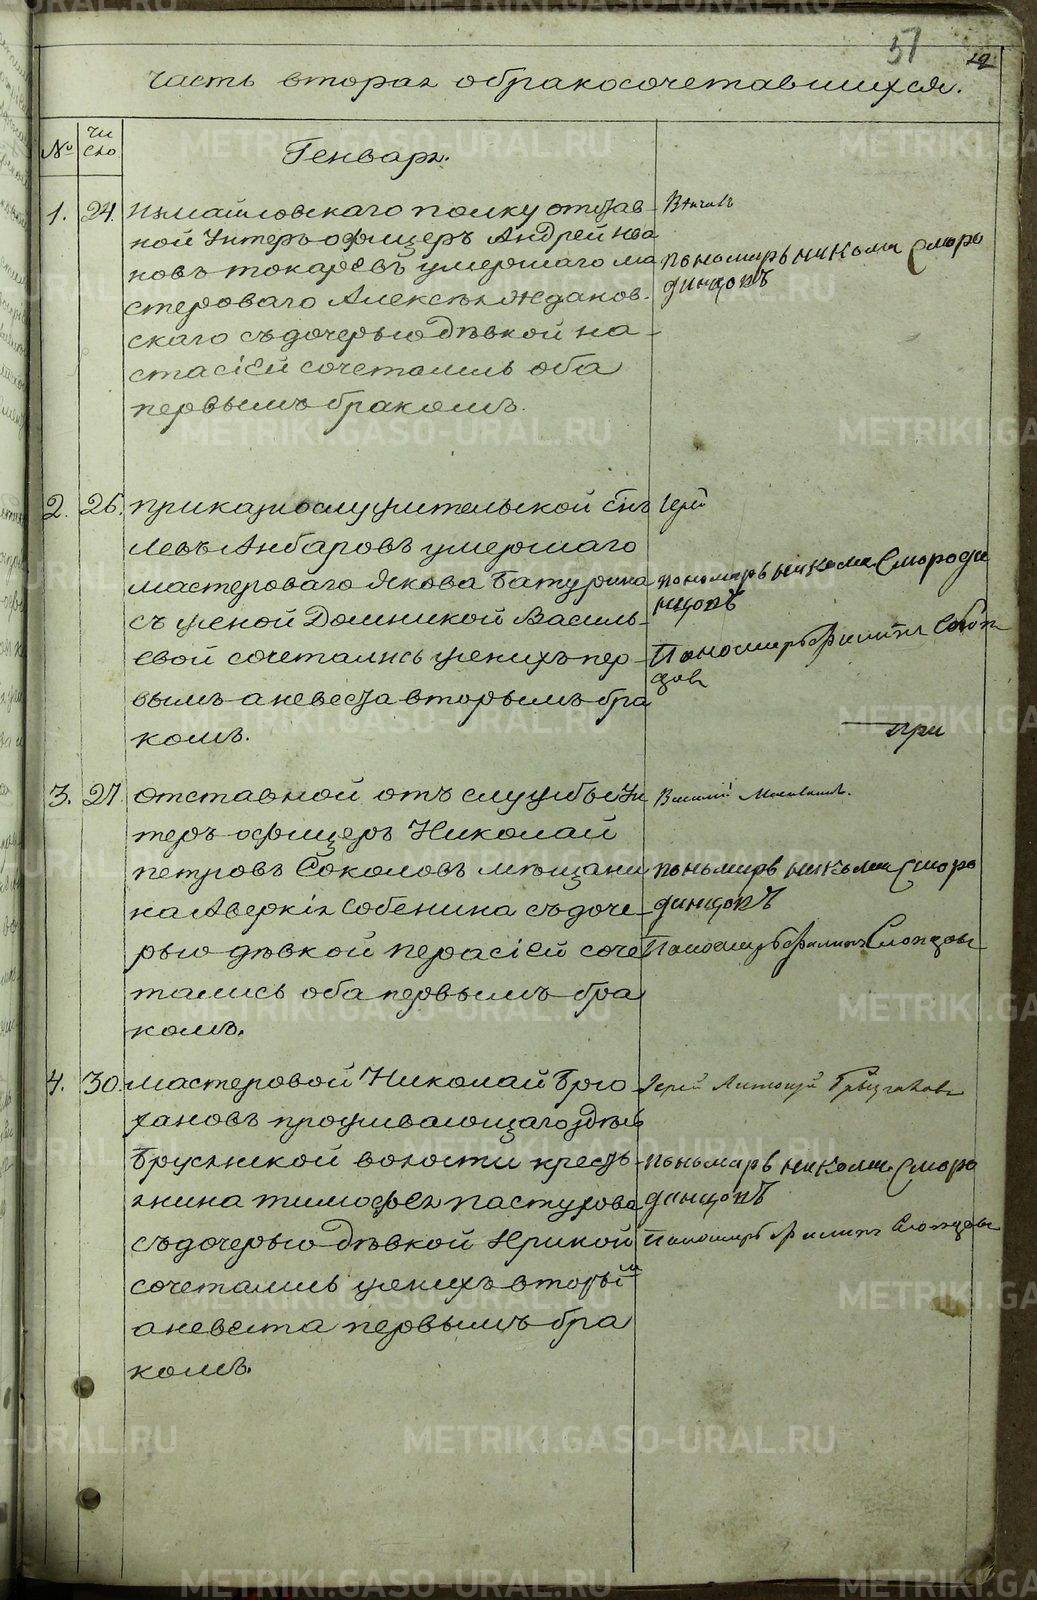 57
Часть вторая обракосочетавшихся.
№
Чи
сло
Генварь.
1. 24. Измайловскаго полку отстав-
ной Унтеръ офицеръ Андрей Ива
новъ токаревъ умершаго ма
стероваго Алексѣя Жданов-
скаго съ дочерью дѣвкой на-
стасіей сочетались оба
первымъ бракомъ.
пономарь николай Сморо
динцовъ
2. 26. приказнослужительской сынъ
Левъ Анбаровъ умершаго
мастероваго Якова Батурина
съ женой Домникой Василь-
евой сочетались женихъ пер-
вымъ а невеста вторымъ бра
комъ.
Іерей
пономарь николай Смороди
нцовъ
Пономарь Филипъ
при
3. 27. отставной отъ службы Ун
теръ офицеръ Николай
петровъ Соколовъ мѣщани
на Аверкія Собенина съ доче-
рью дѣвкой перасіей соче
тались оба первымъ бра
комъ.
Василий
пономарь николай Сморо
динцовъ
Пономарь Филипъ Слопцовъ
4. 30. мастеровой Николай Брю
хановъ проживающаго здѣсь
Бруснянской волости кресть-
янина тимофея пастухова
съ дочерью дѣвкой Ириной
сочетались женихъ вторы
м
а невеста первымъ бра
комъ.
Іерей
пономарь николай Сморо
динцовъ
Пономарь Филипъ Слопцовъ
METRIKI.GASO-URAL.RU